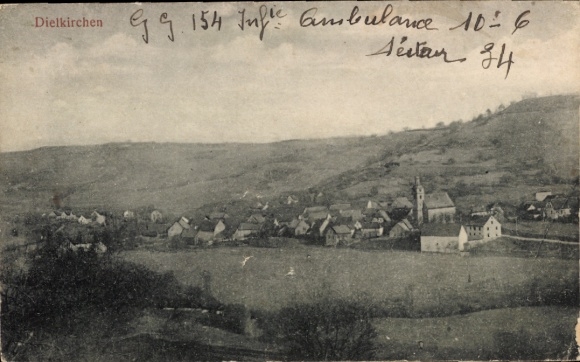 Dielkirchen
G G 154 Infie Ambulance 10: 6
Secteur 94